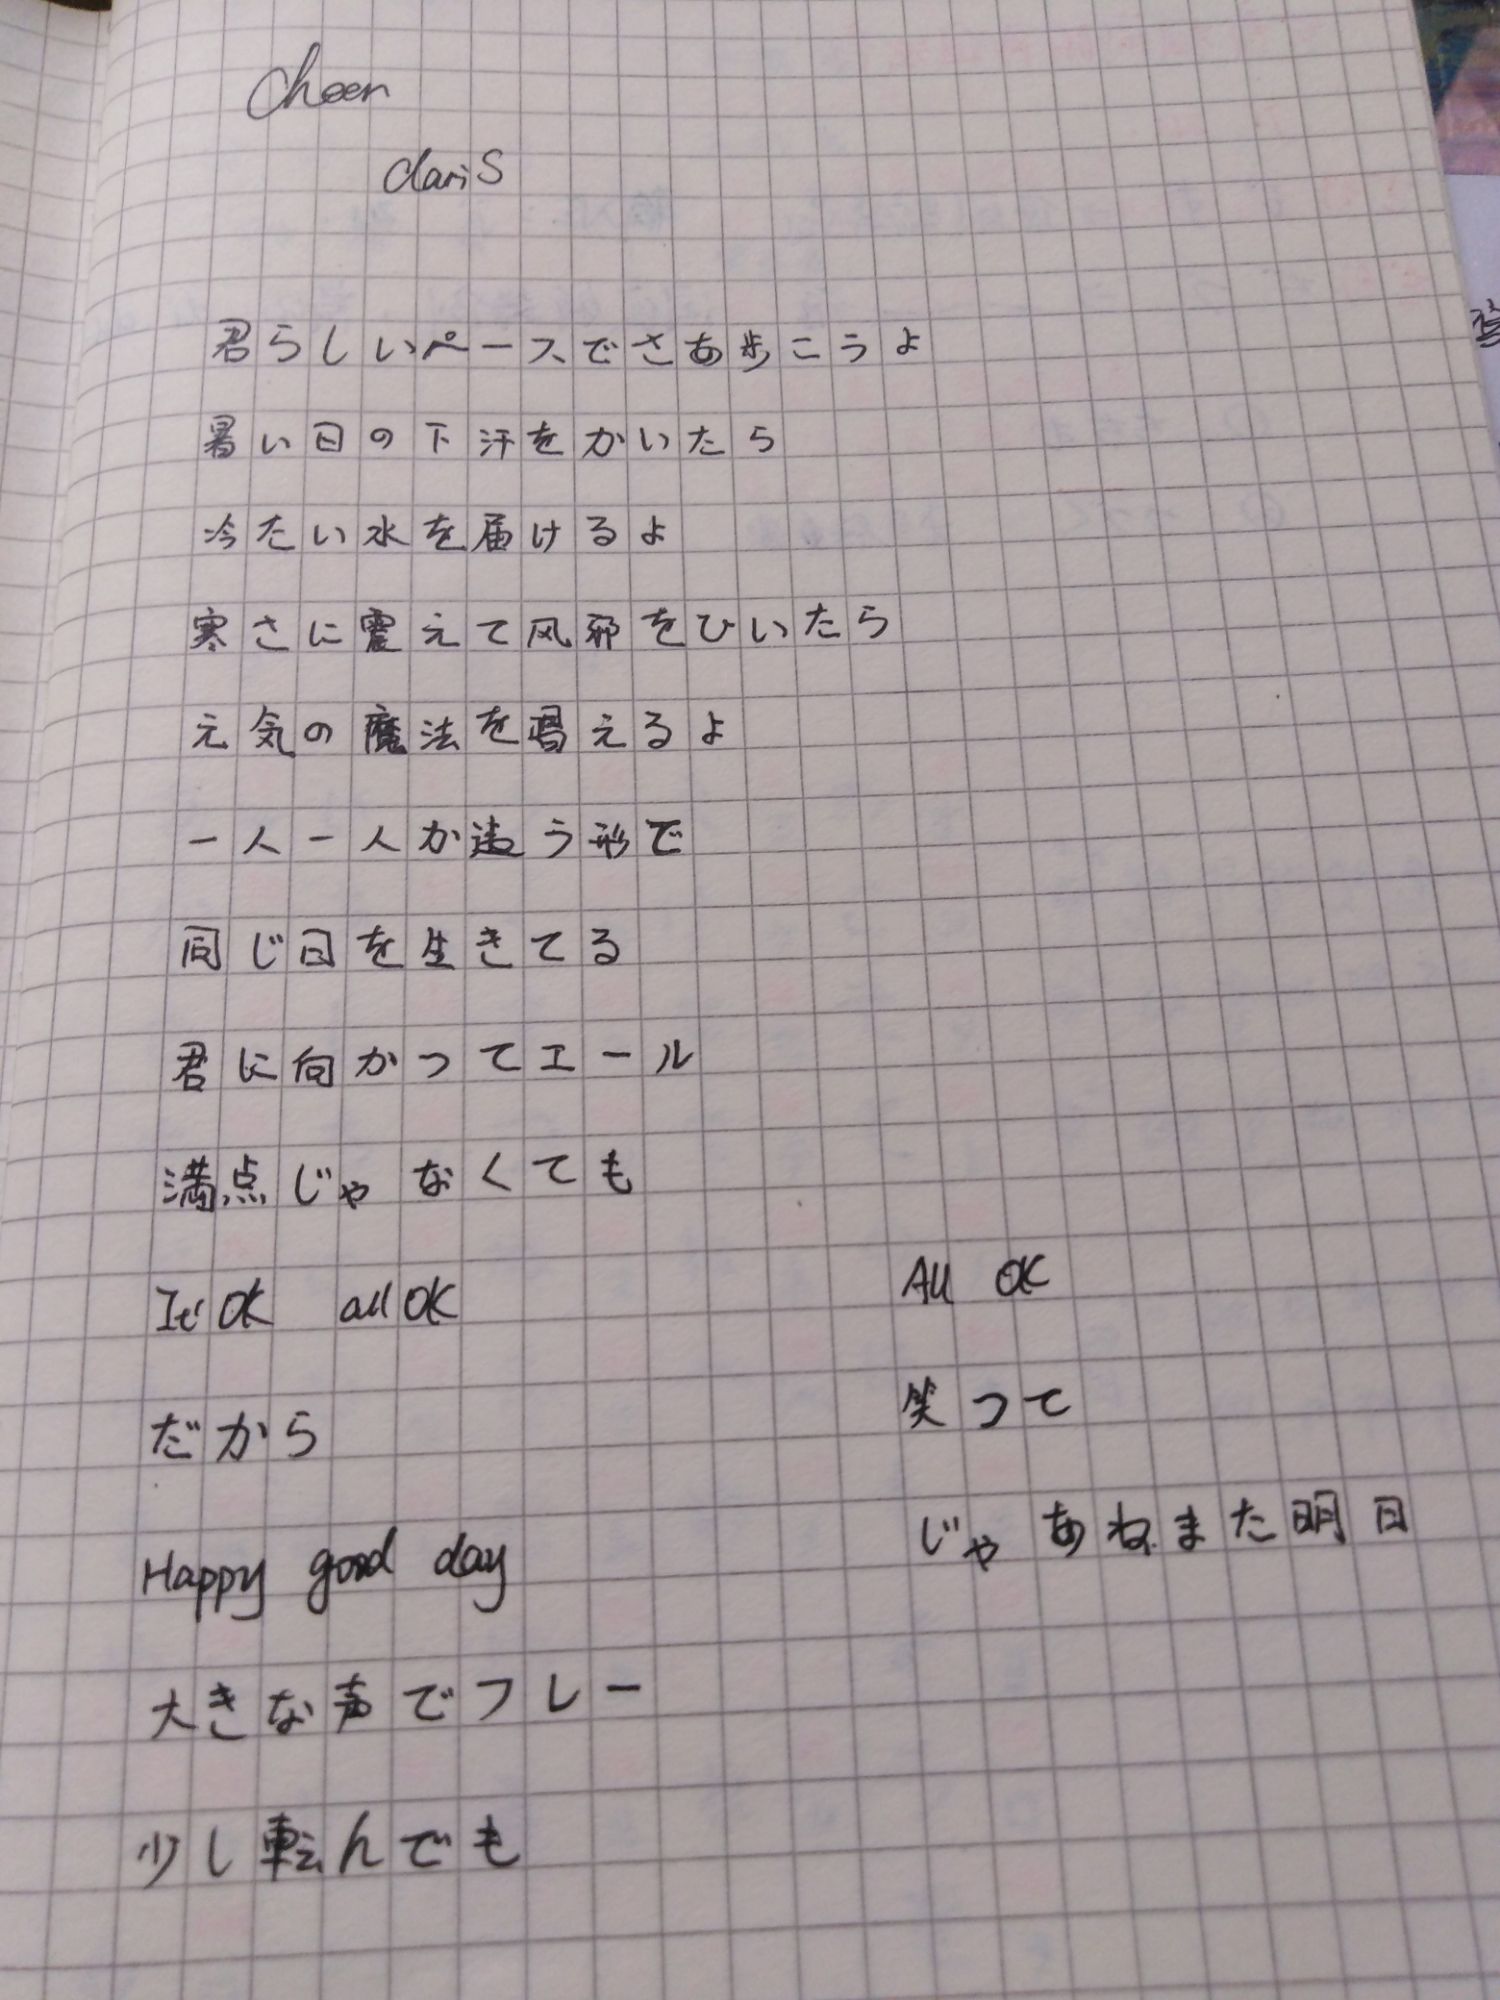 Cheer
ClariS
君らしいペースでさあ歩こうよ
暑い日の下汗をかいたら
冷たい水を届けるよ
寒さに震えて风邪をひいたら
元気の魔法を唱えるよ
一人一人が違う形で
同じ日を生きてる
君に向かってエール
満点じゃなくても
It' OK all OK
だから
Happy good day
大きな声でフレー
少し転んでも
All OK
笑って
じゃあねまた明日